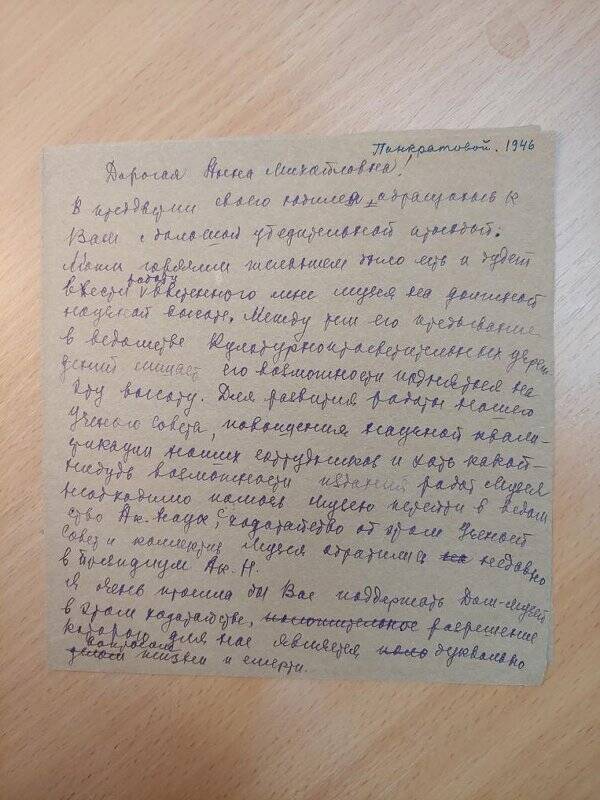 Панкратовой. 1946
Дорогая Анна Михайловна!
В преддверии своего юбилея, обращаюсь к
Вам с большой убедительной просьбой.
Моим горячим желанием было есть и будет
ввести работу вверенного мне музея на должной
научной высоте. Между тем его пребывание
в ведомстве Культурнопросветительных учреж
дений лишает его возможности подняться на
эту высоту. Для развития работы нашего
Ученого Совета, повышения научной квали-
фикации наших сотрудников и хоть какой-
нибудь возможности издания работ Музея
необходимо помочь Музею перейти в ведом
ство Ак. Наук, с ходатайство об этом Ученый
Совет и коллектив Музея обратился на недавно
в Президиум Ак. Н.
Я очень просила бы Вас поддержать Дом-Музей
в этом ходатайстве, положительное разрешение
которого для нас является поло буквально
вопросом
делом жизни и смерти.